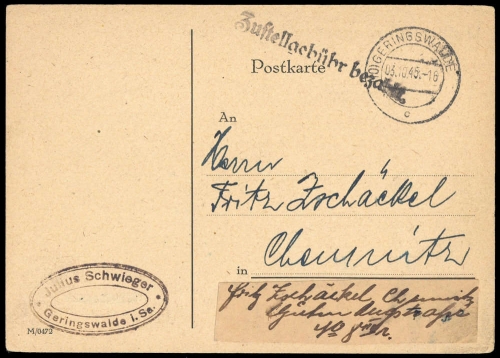 Zustellgebühr bezahlt.
GERINGSWALDE
03.10.45.-16
c
Postkarte
An
Herrn
Fritz Zschäckel
Chemnitz
in
Fritz Zschäckel Chemnitz
Julius Schwieger
* Geringswalde i. Sa. *
M/0472